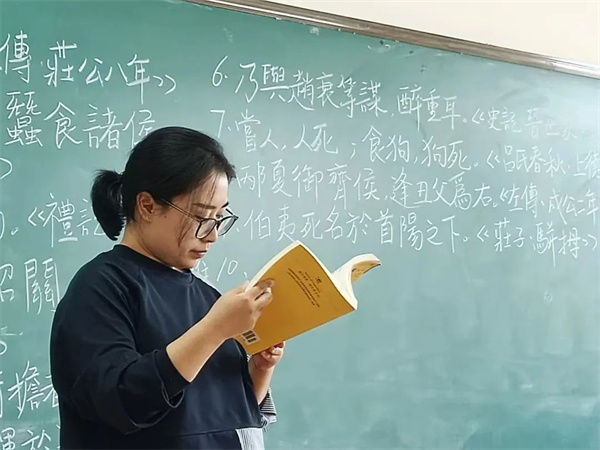 傳·莊公八年》
蠶食諸侯
》
。《禮記
關
擔
6.乃與趙衰等謀,醉重耳。《史記·晉世家
7.當人,人死;食狗,狗死。《呂氏春秋·上德
邴夏御齊侯,逢丑父爲右。《左傳·成公二年
伯夷死名於首陽之下。《莊子·駢拇》
10.